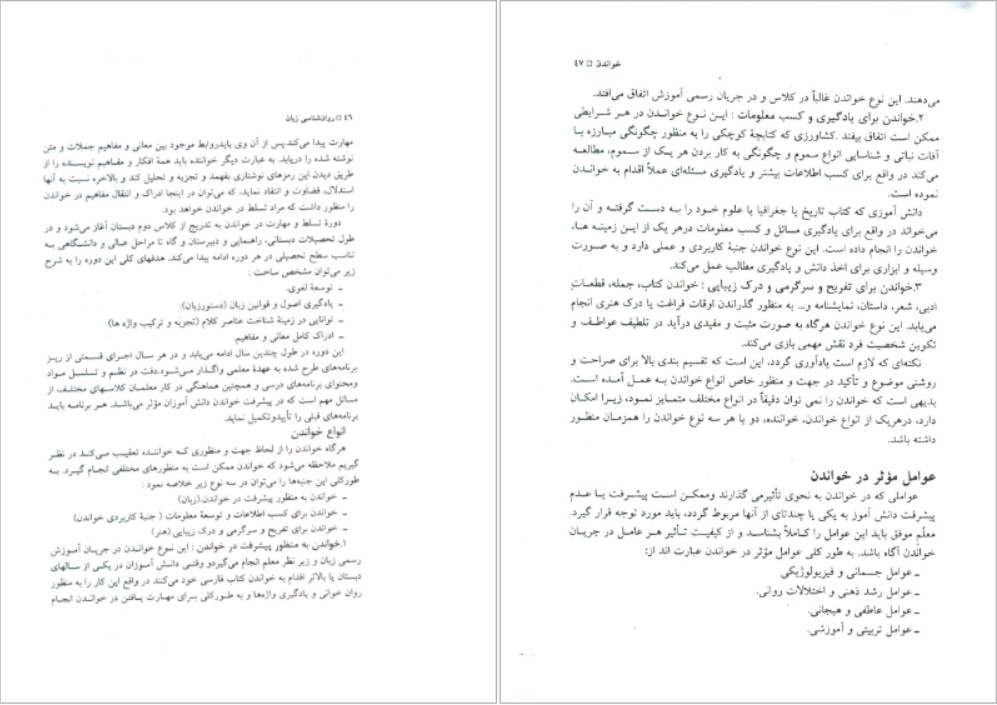 ٤٦ □ روان‌شناسی زبان
مهارت پیدا می‌کند.پس از آن وی بایدروابط موجود بین معانی و مفاهیم جملات و متن
نوشته شده را دریابد. به عبارت دیگر خواننده باید همهٔ افکار و مفاهیم نویسنده را از
طریق دیدن این رمزهای نوشتاری بفهمد و تجزیه و تحلیل کند و بالاخره نسبت به آنها
استدلال، قضاوت و انتقاد نماید، که می‌توان در اینجا ادراک و انتقال مفاهیم در خواندن
را منظور داشت که مراد تسلط در خواندن خواهد بود.
دورهٔ تسلط و مهارت در خواندن به تدریج از کلاس دوم دبستان آغاز می‌شود و در
طول تحصیلات دبستانی، راهنمایی و دبیرستان و گاه تا مراحل عالی و دانشگاهی به
تناسب سطح تحصیلی در هر دوره ادامه پیدا می‌کند. هدفهای کلی این دوره را به شرح
زیر می‌توان مشخص ساخت :
ـ توسعهٔ لغوی.
ـ یادگیری اصول و قوانین زبان (دستورزبان).
ـ توانایی در زمینهٔ شناخت عناصر کلام (تجزیه و ترکیب واژه ها)
ـ ادراک کامل معانی و مفاهیم.
این دوره در طول چندین سال ادامه می‌یابد و در هر سال اجرای قسمتی از ریز
برنامه‌های طرح شده به عهدهٔ معلمی واگذار می‌شود.دقت در نظم و تسلسل مواد
ومحتوای برنامه‌های درسی و همچنین هماهنگی در کار معلمان کلاسهای مختلف از
مسائل مهم است که در پیشرفت خواندن دانش آموزان مؤثر می‌باشد. هر برنامه باید
برنامه‌های قبلی را تأییدوتکمیل نماید.
انواع خواندن
هرگاه خواندن را از لحاظ جهت و منظوری که خواننده تعقیب می‌کند در نظر
گیریم ملاحظه می‌شود که خواندن ممکن است به منظورهای مختلفی انجام گیرد. به
طورکلی این جنبه‌ها را می‌توان در سه نوع زیر خلاصه نمود :
ـ خواندن به منظور پیشرفت در خواندن.(زبان)
ـ خواندن برای کسب اطلاعات و توسعهٔ معلومات ( جنبهٔ کاربردی خواندن)
ـ خواندن برای تفریح و سرگرمی و درک زیبایی (هنر)
۱.خواندن به منظور پیشرفت در خواندن : این نوع خواندن در جریان آموزش
رسمی زبان و زیر نظر معلم انجام می‌گیردو وقتی دانش آموزان در یکی از سالهای
دبستان یا بالاتر اقدام به خواندن کتاب فارسی خود می‌کنند در واقع این کار را به منظور
روان خوانی و یادگیری واژه‌ها و به طورکلی برای مهارت یافتن در خواندن انجام
خواندن □ ٤٧
می‌دهند. این نوع خواندن غالباً در کلاس و در جریان رسمی آموزش اتفاق می‌افتد.
۲.خواندن برای یادگیری و کسب معلومات : این نوع خواندن در هر شرایطی
ممکن است اتفاق بیفتد .کشاورزی که کتابچهٔ کوچکی را به منظور چگونگی مبارزه با
آفات نباتی و شناسایی انواع سموم و چگونگی به کار بردن هر یک از سموم، مطالعه
می‌کند در واقع برای کسب اطلاعات بیشتر و یادگیری مسئله‌ای عملاً اقدام به خواندن
نموده است.
دانش آموزی که کتاب تاریخ یا جغرافیا یا علوم خود را به دست گرفته و آن را
می‌خواند در واقع برای یادگیری مسائل و کسب معلومات درهر یک از این زمینه ها،
خواندن را انجام داده است. این نوع خواندن جنبهٔ کاربردی و عملی دارد و به صورت
وسیله و ابزاری برای اخذ دانش و یادگیری مطالب عمل می‌کند.
۳.خواندن برای تفریح و سرگرمی و درک زیبایی : خواندن کتاب، جمله، قطعاتِ
ادبی، شعر، داستان، نمایشنامه و... به منظور گذراندن اوقات فراغت یا درک هنری انجام
می‌یابد. این نوع خواندن هرگاه به صورت مثبت و مفیدی درآید در تلطیف عواطف و
تکوین شخصیت فرد نقش مهمی بازی می‌کند.
نکته‌ای که لازم است یادآوری گردد، این است که تقسیم بندی بالا برای صراحت و
روشنی موضوع و تأکید در جهت و منظور خاص انواع خواندن به عمل آمده است.
بدیهی است که خواندن را نمی توان دقیقاً در انواع مختلف متمایز نمود، زیرا امکان
دارد، درهریک از انواع خواندن، خواننده، دو یا هر سه نوع خواندن را همزمان منظور
داشته باشد.
عوامل مؤثر در خواندن
عواملی که در خواندن به نحوی تأثیرمی گذارند وممکن است پیشرفت یا عدم
پیشرفت دانش آموز به یکی یا چندتای از آنها مربوط گردد، باید مورد توجه قرار گیرد.
معلّمِ موفق باید این عوامل را کاملاً بشناسد و از کیفیت تأثیر هر عامل در جریان
خواندن آگاه باشد. به طور کلی عوامل مؤثر در خواندن عبارت اند از:
ـ عوامل جسمانی و فیزیولوژیکی
ـ عوامل رشد ذهنی و اختلالات روانی.
ـ عوامل عاطفی و هیجانی.
ـ عوامل تربیتی و آموزشی.